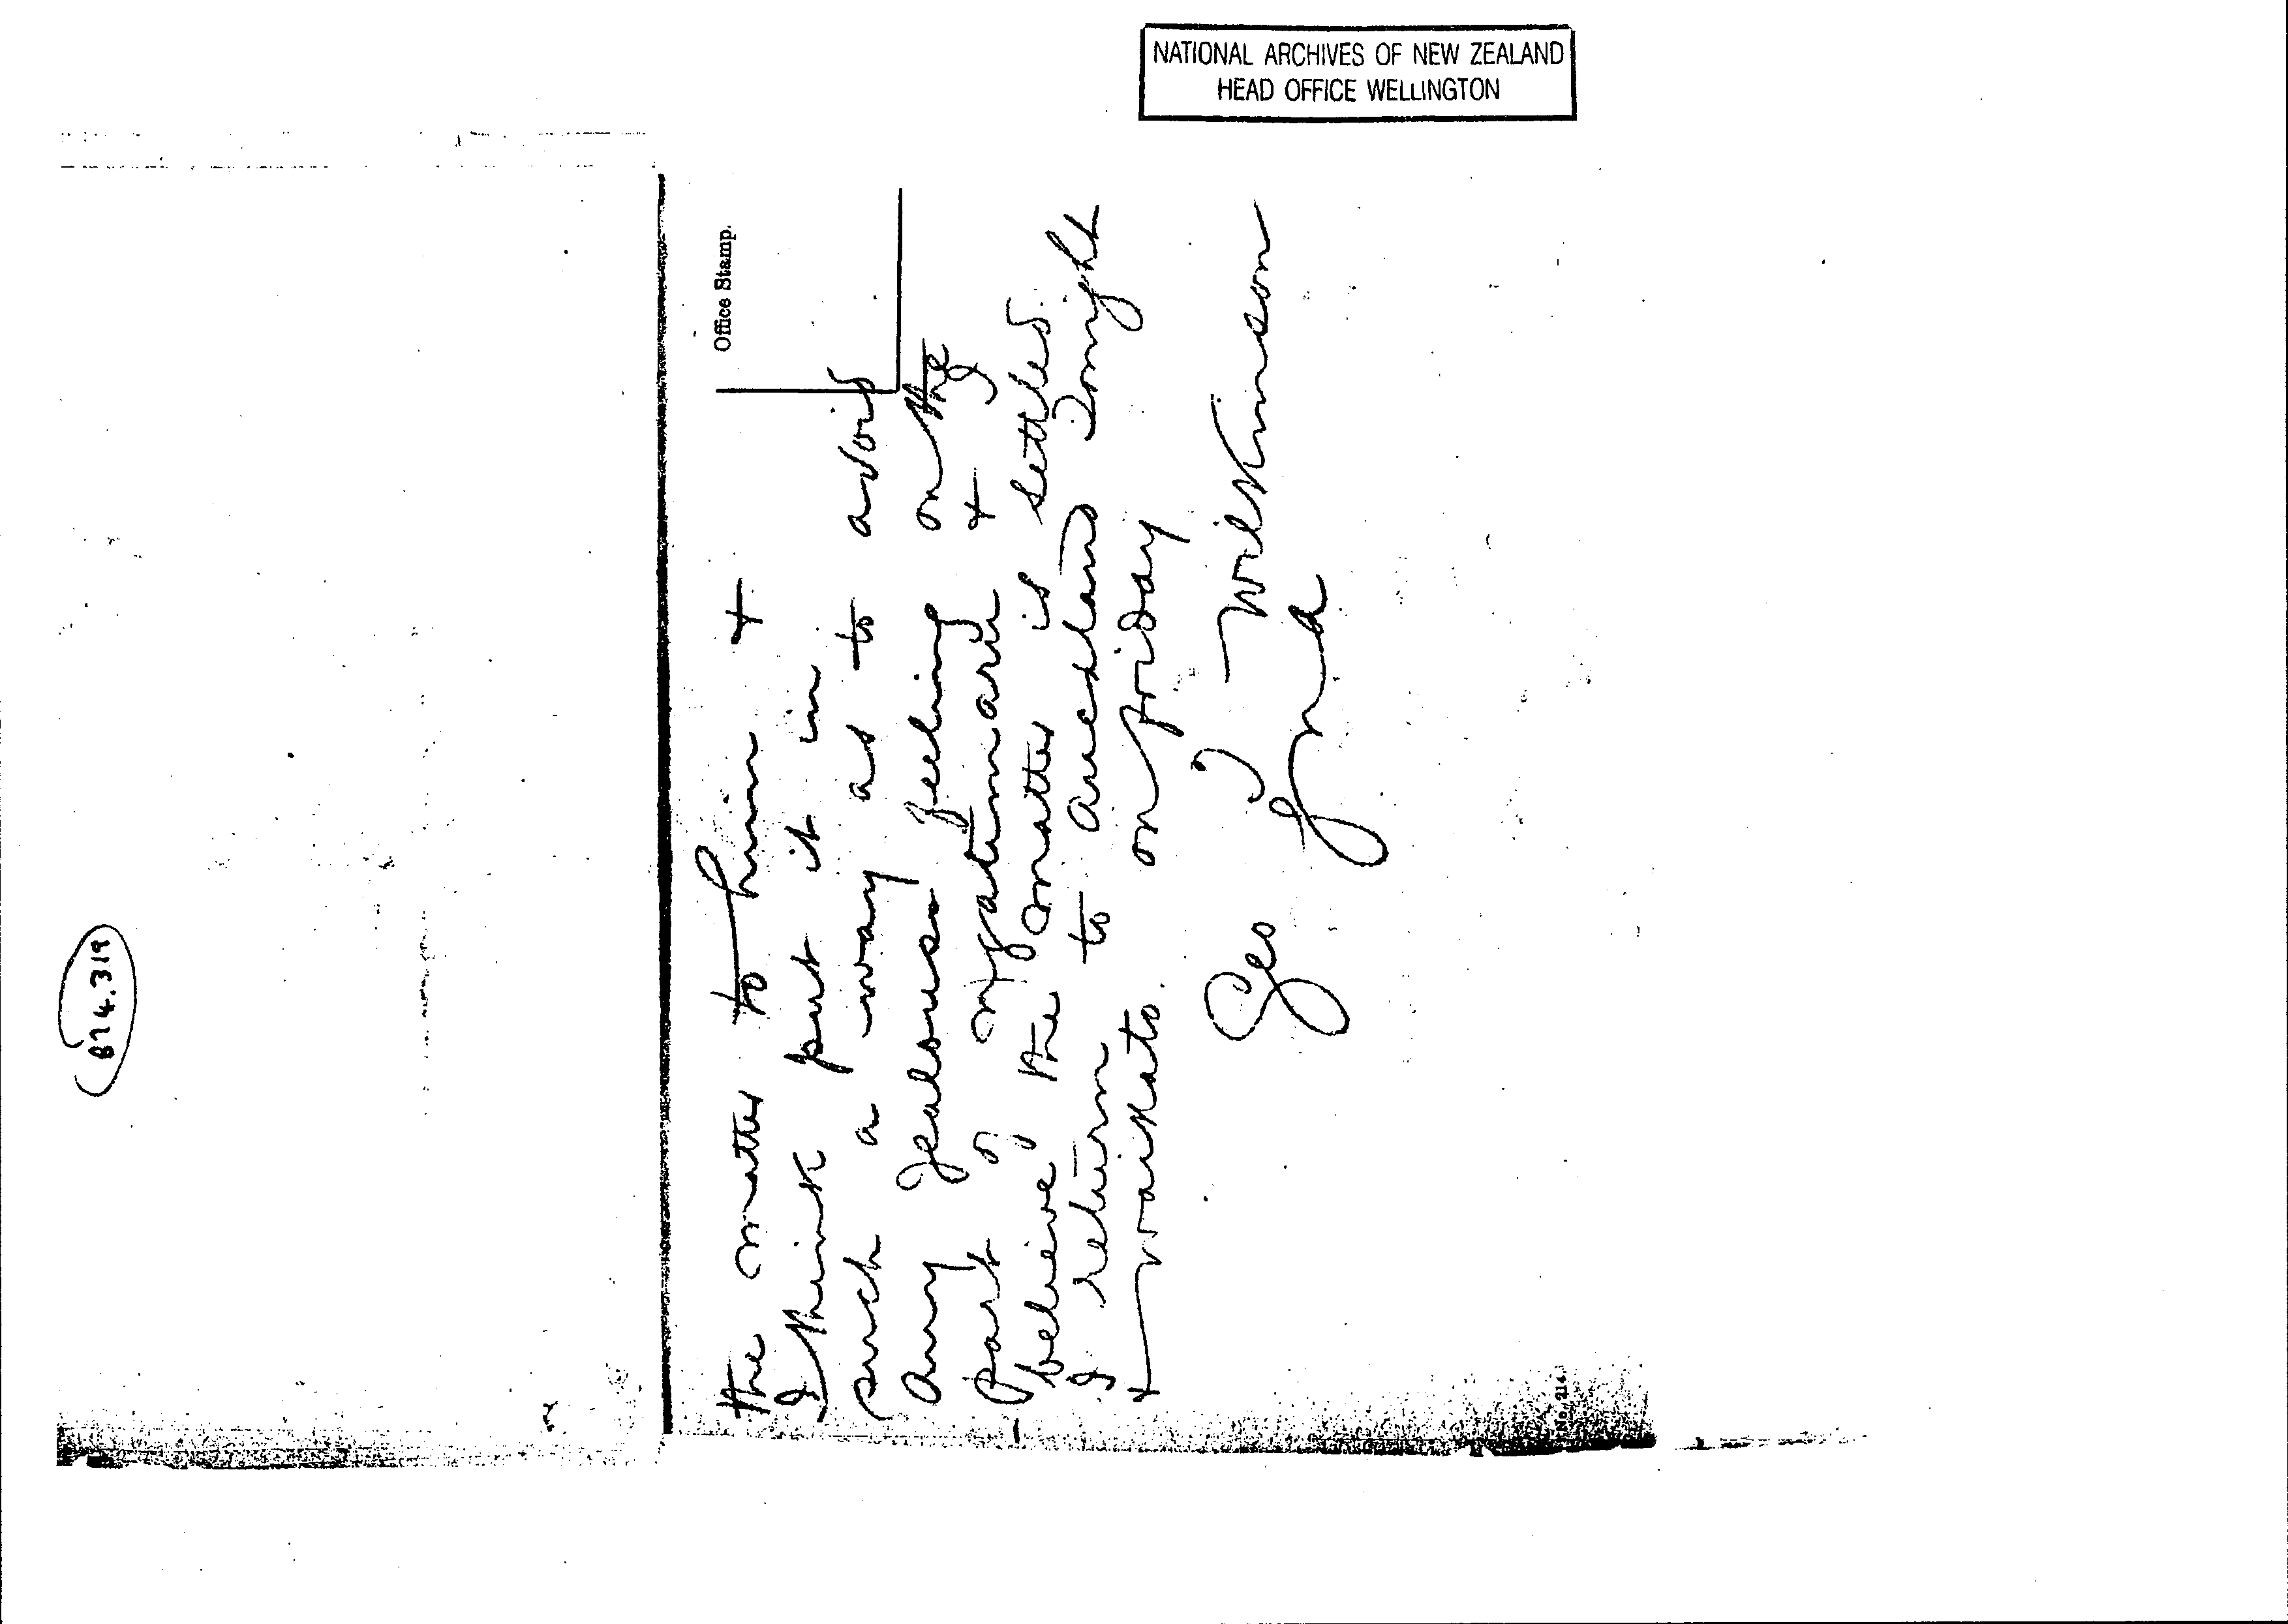 NATIONAL ARCHIVES OF NEW ZEALAND
HEAD OFFICE WELLINGTON
874.319
Office Stamp.
the matter to him +
I think put it in
such a way as to avoid
any jealousy feeling on the
part of Ngatimaru + I
believe the matter is settled.
I return to Auckland Tonight
+ Waikato on Friday
Geo T Wilkinson
No. 214